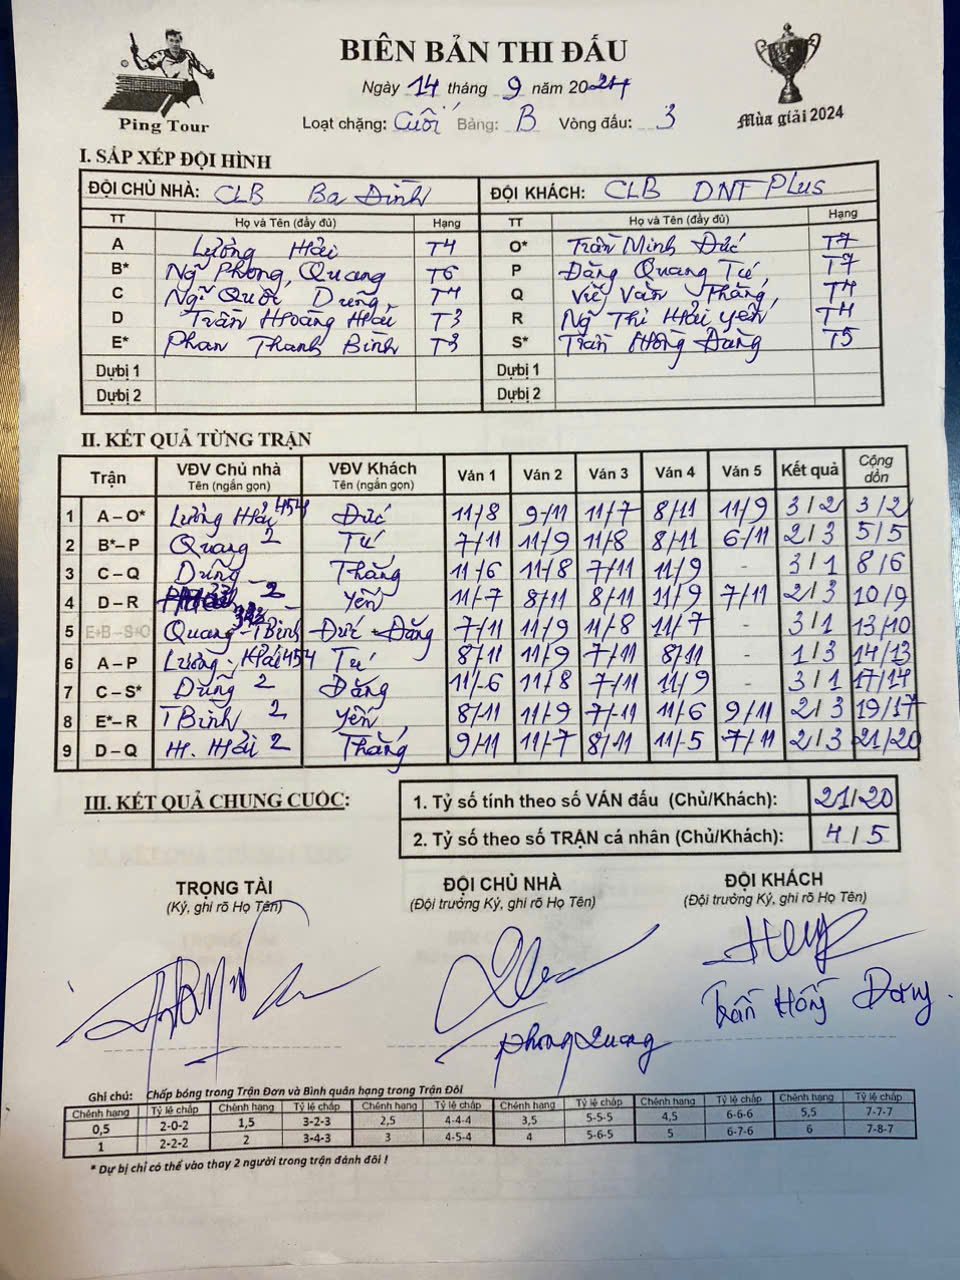 BIÊN BẢN THI ĐẤU
Ping Tour
Mùa giải 2024
Ngày 14 tháng 9 năm 2024
Loạt chặng: Cuối Bảng: B Vòng đấu: 3
I. SẮP XẾP ĐỘI HÌNH
ĐỘI CHỦ NHÀ: CLB Ba Đình ĐỘI KHÁCH: CLB DNT Plus
TT Họ và Tên (đầy đủ) Hạng TT Họ và Tên (đầy đủ) Hạng
A Lường Hải T4 O* Trần Minh Đức T7
B* Ng Phong Quang T6 P Đặng Quang Tú T7
C Ng Quốc Dũng T4 Q Vũ Văn Thắng T4
D Trần Hoàng Hải T3 R Ng Thị Hải Yến T4
E* Phan Thanh Bình T3 S* Trần Hồng Đăng T5
Dự bị 1 Dự bị 1
Dự bị 2 Dự bị 2
II. KẾT QUẢ TỪNG TRẬN
Trận VĐV Chủ nhà Tên (ngắn gọn) VĐV Khách Tên (ngắn gọn) Ván 1 Ván 2 Ván 3 Ván 4 Ván 5 Kết quả Cộng dồn
1 A – O* Lường Hải 454 Đức 11/8 9-11 11/7 8/11 11/9 3/2 3/2
2 B*– P Quang 2 Tú 7/11 11/9 11/8 8/11 6/11 2/3 5/5
3 C – Q Dũng Thắng 11/6 11/8 7/11 11/9 - 3/1 8/6
4 D – R 2 Yến 11/7 8/11 8/11 11/9 7/11 2/3 10/9
5 E+B – S+O Quang - TBình Đức - Đăng 7/11 11/9 11/8 11/7 - 3/1 13/10
6 A – P Lường - Hải 454 Tú 8/11 11/9 7/11 8/11 - 1/3 14/13
7 C – S* Dũng 2 Đăng 11/6 11/8 7/11 11/9 - 3/1 17/14
8 E*– R TBình 2 Yến 8/11 11/9 7/11 11/6 9/11 2/3 19/17
9 D – Q H. Hải 2 Thắng 9/11 11/7 8/11 11/5 7/11 2/3 21/20
III. KẾT QUẢ CHUNG CUỘC:
1. Tỷ số tính theo số VÁN đấu (Chủ/Khách): 21/20
2. Tỷ số theo số TRẬN cá nhân (Chủ/Khách): 4/5
TRỌNG TÀI ĐỘI CHỦ NHÀ ĐỘI KHÁCH
(Ký, ghi rõ Họ Tên) (Đội trưởng Ký, ghi rõ Họ Tên) (Đội trưởng Ký, ghi rõ Họ Tên)
Phong Quang
Trần Hồng Đăng
Ghi chú: Chấp bóng trong Trận Đơn và Bình quân hạng trong Trận Đôi
Chênh hạng Tỷ lệ chấp Chênh hạng Tỷ lệ chấp Chênh hạng Tỷ lệ chấp Chênh hạng Tỷ lệ chấp Chênh hạng Tỷ lệ chấp Chênh hạng Tỷ lệ chấp
0,5 2-0-2 1,5 3-2-3 2,5 4-4-4 3,5 5-5-5 4,5 6-6-6 5,5 7-7-7
1 2-2-2 2 3-4-3 3 4-5-4 4 5-6-5 5 6-7-6 6 7-8-7
* Dự bị chỉ có thể vào thay 2 người trong trận đánh đôi !